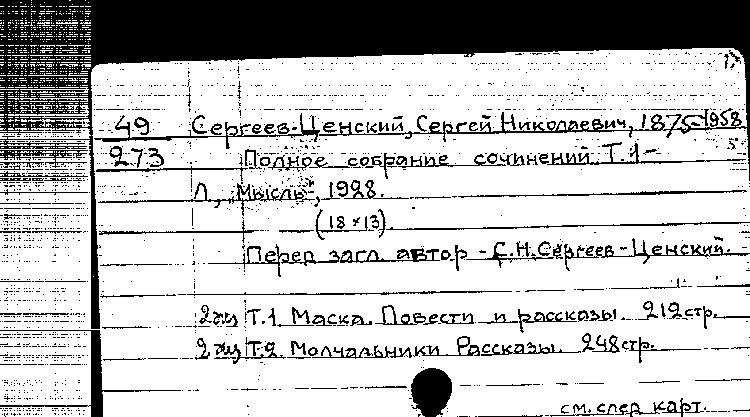 49 Сергеев-Ценский, Сергей Николаевич, 1875-1958
273 Полное собрание сочинений. Т.1-
Л., „Мысль“, 1928.
(18×13).
Перед загл. автор - С.Н.Сергеев-Ценский.
2 экз Т.1. Маска. Повести и рассказы. 212 стр.
2 экз Т.2. Молчальники. Рассказы. 248 стр.
см. след карт.